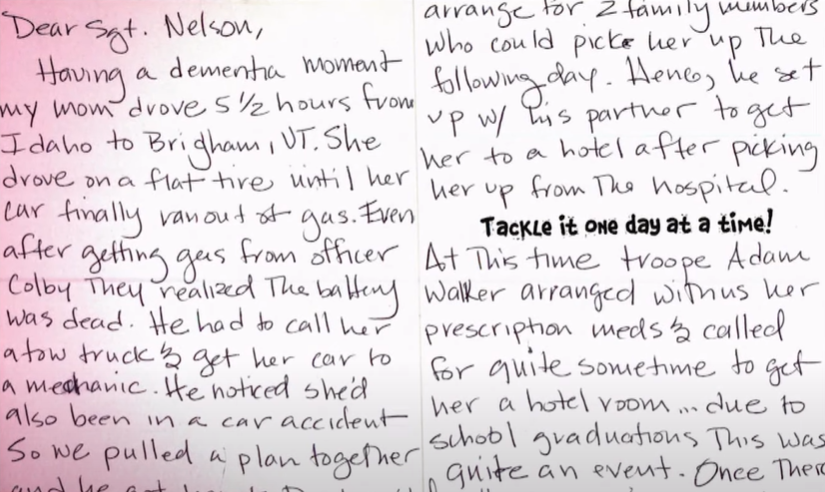 Dear Sgt. Nelson,
Having a dementia moment
my mom drove 5 1/2 hours from
Idaho to Brigham, UT. She
drove on a flat tire until her
car finally ran out of gas. Even
after getting gas from officer
Colby They realized The battery
was dead. He had to call her
a tow truck & get her car to
a mechanic. He noticed she'd
also been in a car accident
So we pulled a plan together
and he got her to
arrange for 2 family members
who could picke her up The
following day. Hence, he set
up w/ his partner to get
her to a hotel after picking
her up from The hospital.
Tackle it one day at a time!
At This time troope Adam
Walker arranged with us her
prescription meds & called
for quite sometime to get
her a hotel room... due to
school graduations This was
quite an event. Once There